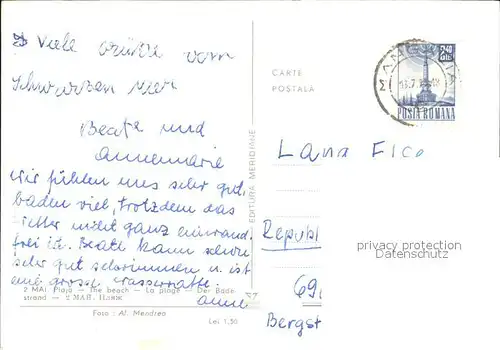 Viele Grüße vom
Schwarzen Meer
Beate und
Annemarie
Wir fühlen uns sehr gut,
baden viel, trotzdem das
Wetter nicht ganz einwand
frei ist. Beate kann schon
sehr gut schwimmen u. ist
eine grosse Wasserratte.
Anne
2 MAI. Plaja — The beach — La plage — Der Bade-
strand — 2 МАЯ. Пляж
Foto : Al. Mendrea
Lei 1,50
EDITURA MERIDIANE
CARTE
POSTALA
POSTA ROMANA
Lana Fico
Republ
69
Bergst
privacy protection
Datenschutz